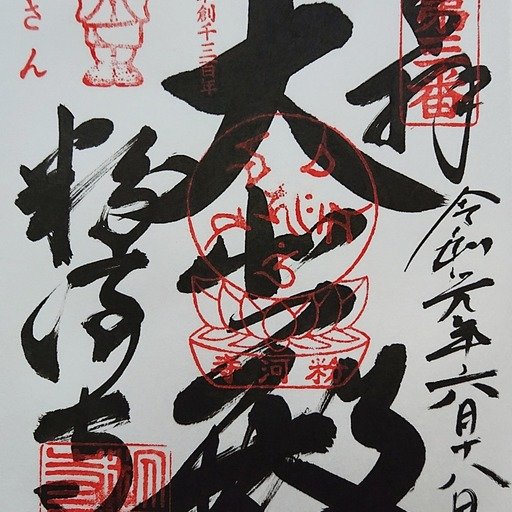 第三番
拝
令和元年六月十八日
創千三百年
大悲殿
粉河寺
さん
粉河寺